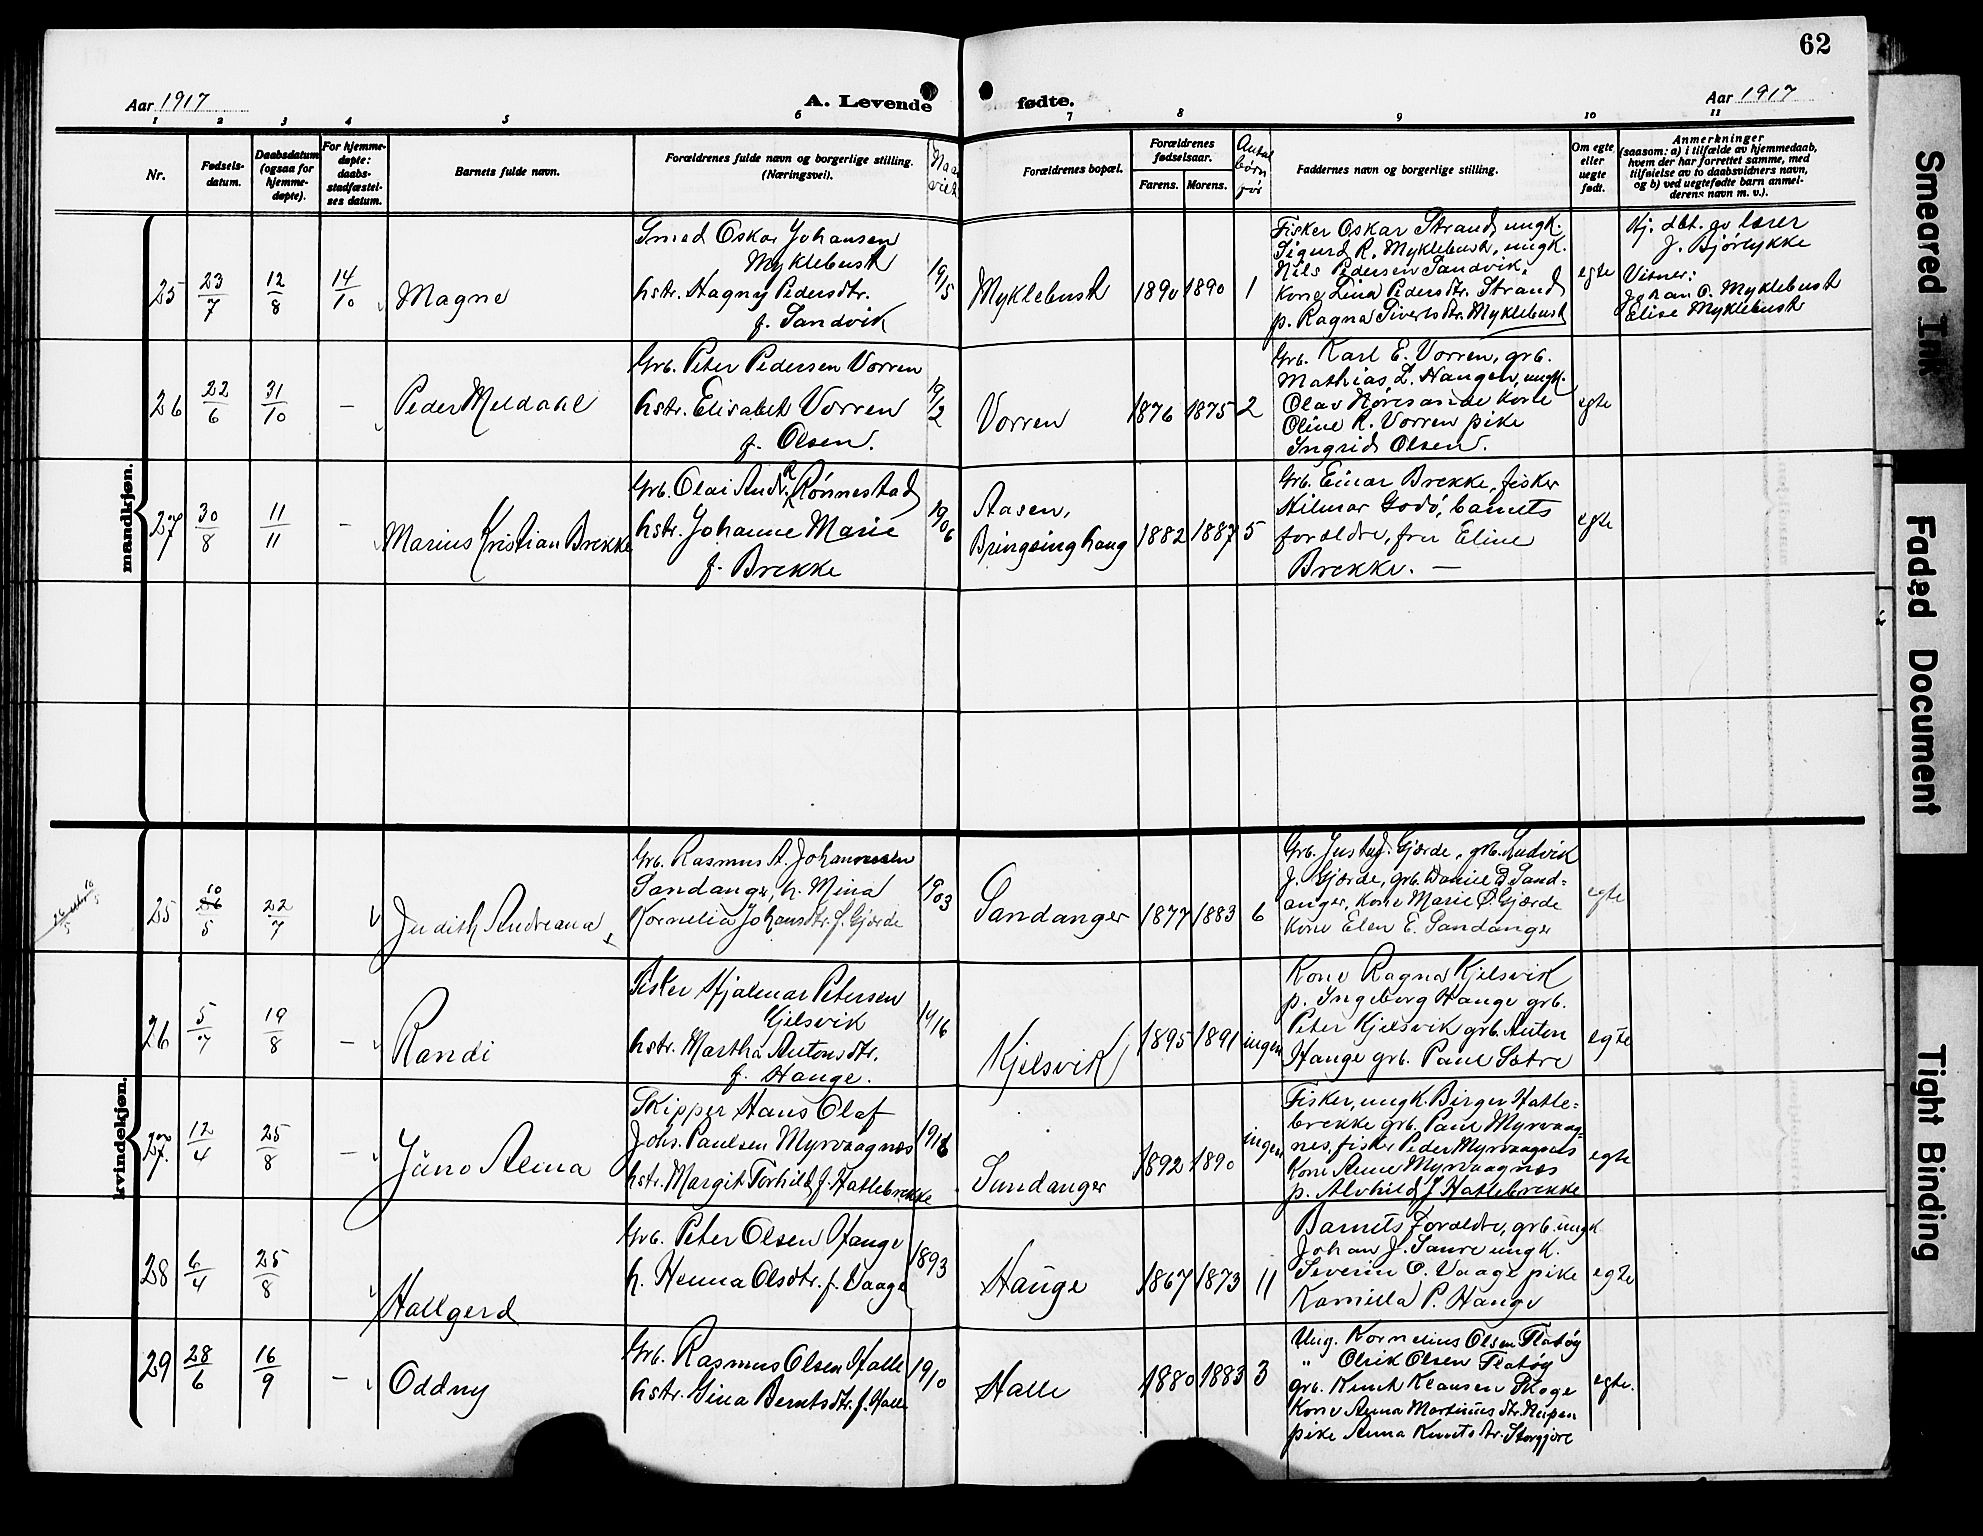 62
Aar 1917
A. Levende
fødte.
Aar 1917
1 2 3 4 5 6 7 8 9 10 11
Nr.
Fødsels-
datum.
Daabsdatum
(ogsaa for
hjemme-
døpte).
For hjemme-
døpte:
daabs-
stadfæstel-
ses datum.
Barnets fulde navn.
Forældrenes fulde navn og borgerlige stilling.
(Næringsvei).
Naar
viet
Forældrenes bopæl.
Forældrenes
fødselsaar.
Farens. Morens.
Antal
børn
før
Faddernes navn og borgerlige stilling.
Om egte
eller
uegte
født.
Anmerkninger
(saasom: a) i tilfælde av hjemmedaab,
hvem der har forrettet samme, med
tilføielse av to daabsvidners navn,
og b) ved uegtefødte barn anmel-
derens navn m. v.).
mandkjøn.
25
23/7
12/8
14/10
Magne
Smed Oskar Johansen
Myklebust
hstr. Hagny Pedersdtr.
f. Sandvik
19/15
Myklebust
1890 1890 1
Fisker Oskar Strand, ungk.
Sigurd R. Myklebust, ungk.
Nils Pedersen Sandvik,
Kone Lina Pedersdtr. Strand
p. Ragna Sivertsdtr. Myklebust
egte
Hj. dbt. av lærer
J. Bjørlykke
Vitner:
Johan O. Myklebust
Elise Myklebust
26
22/6
31/10
—
Peder Meldahl
Grb. Peter Pedersen Vorren
hstr. Elisabet Vorren
f. Olsen.
19/12
Vorren
1876 1875 2
Grb. Karl E. Vorren, grb.
Mathias L. Haugen, ungk.
Olav Høresande Kone
Oline R. Vorren pike
Ingrid Olsen.
egte
27
30/8
11/11
—
Marius Kristian Brekke
Grb. Olai Andr. R. Rønnestad
hstr. Johanne Marie
f. Brekke
19/06
Aasen,
Bringsinghaug
1882 1887 5
Grb. Einar Brekke, fisker
Hilmar Godö, barnets
forældre, fru Eline
Brekke. —
egte
kvindekjøn.
25
10/5
22/7
Judith Andreana
Grb. Rasmus A. Johannesen
Sandanger, h. Mina
Kornelia Johansdtr. f. Gjærde
1903
Sandanger
1877 1883 6
Grb. Gustav J. Gjærde, grb. Ludvik
J. Gjærde, grb. Daniel P. Sand=
anger, Kone Marie O. Gjærde
Kone Elen E. Sandanger
egte
26
5/7
19/8
—
Randi
Fisker Hjalmar Petersen
Kjelsvik
hstr. Martha Antonsdtr.
f. Hauge.
1916
Kjelsvik
1895 1891 ingen
Kone Ragna Kjelsvik
p. Ingeborg Hauge grb.
Peter Kjelsvik grb. Anton
Hauge grb. Paul Sætre
egte
27.
12/4
25/8
—
Juno Alma
Skipper Hans Olaf
Johs. Paulsen Myrvaagnes
hstr. Margit Torhild f. Hatlebrekke
1916
Sundanger
1892 1890 ingen
Fisker, ungk. Birger Hatle=
brekke grb. Paul Myrvaag=
nes, fisker Peder Myrvaagnes
Kone Anne Myrvaagnes
p. Alvhild J. Hatlebrekke
egte
28
6/4
25/8
Hallgerd
Grb. Peter Olsen Hauge
h. Henna Olsdtr. f. Vaage
1893
Hauge
1867 1873 11
Barnets Forældre, grb. ungk.
Johan J. Saure ungk.
Severin O. Vaage pike
Kamilla P. Hauge
egte
29
28/6
16/9
—
Oddny
Grb. Rasmus Olsen Halle
hstr. Gina Berntsdtr. f. Halle
1910
Halle
1880 1883 3
Ung. Kornelius Olsen Flatöy
" Olrik Olsen Flatöy
grb. Knut Klausen Skoge
Kone Anna Martinusdtr. Neipen
pike Anna Knutsdtr. Storgjøre
egte.
Smeared Ink
Faded Document
Tight Binding